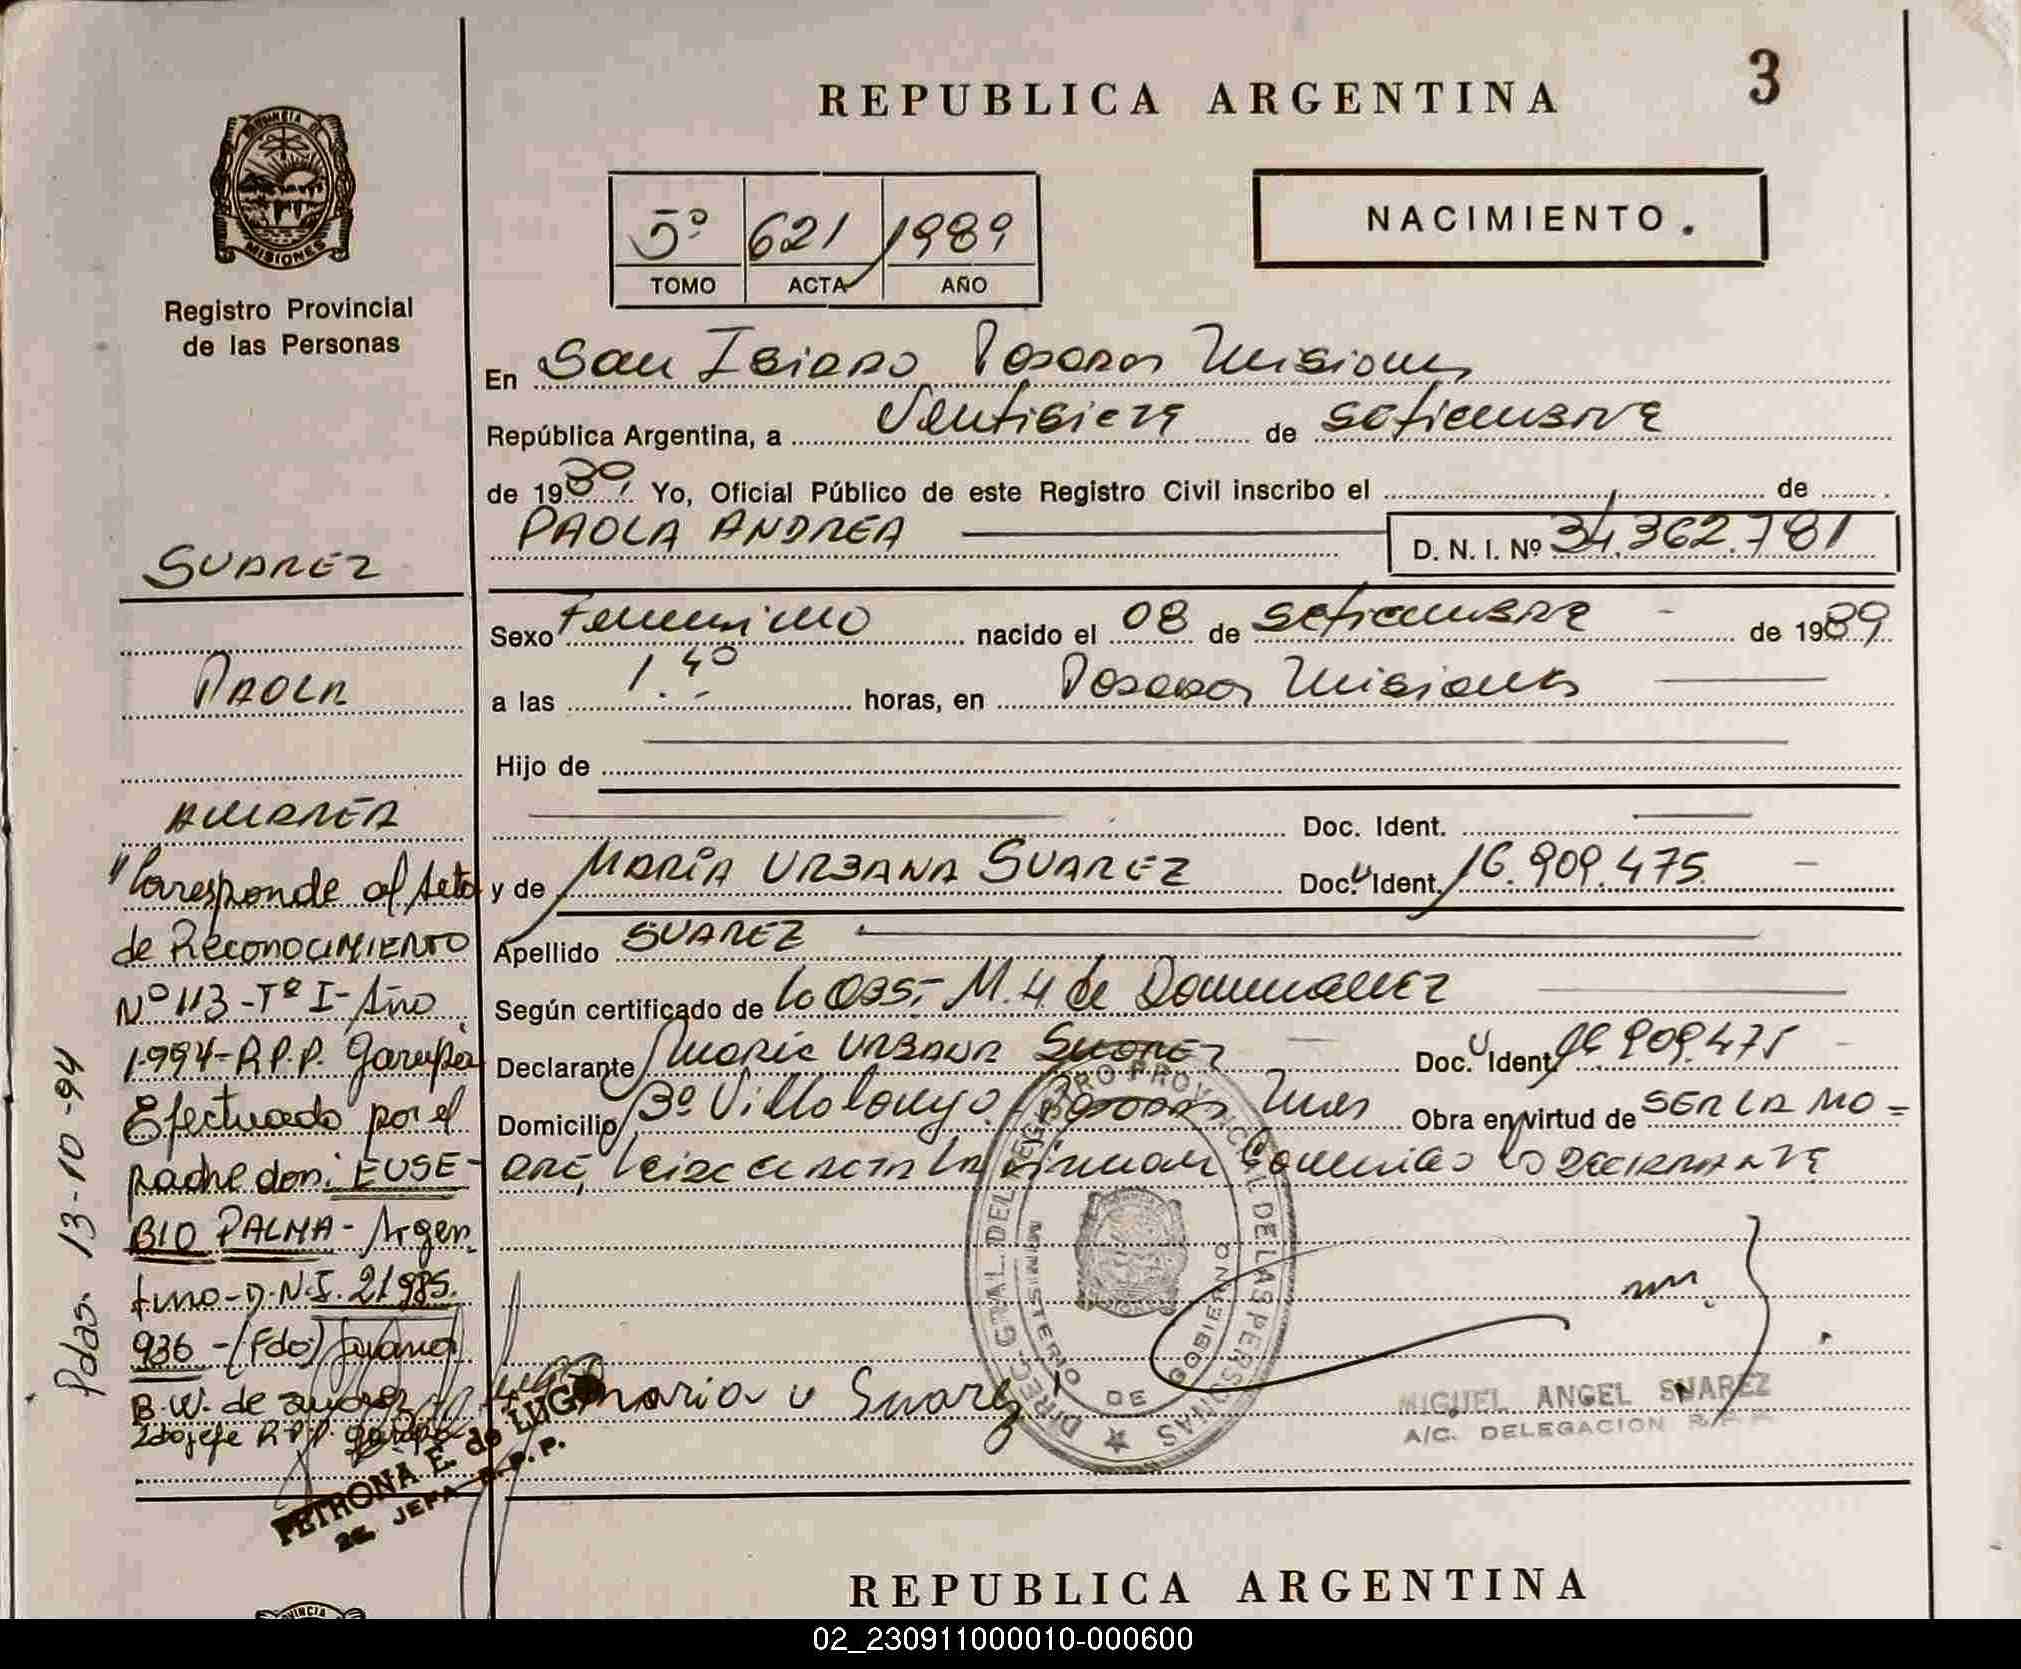 REPUBLICA ARGENTINA
3
PROVINCIA DE
MISIONES
Registro Provincial
de las Personas
5º 621 1989
TOMO ACTA AÑO
NACIMIENTO.
En San Isidro Posadas Misiones
República Argentina, a Ventisiete de setiembre
de 1989 Yo, Oficial Público de este Registro Civil inscribo el de
PAOLA ANDREA D. N. I. Nº 34.362.781
Sexo Femenino nacido el 08 de setiembre de 1989
a las 1.40 horas, en Posadas Misiones
Hijo de
Doc. Ident.
y de MARIA URBANA SUAREZ Doc. Ident. 16.909.475
Apellido SUAREZ
Según certificado de la Obs. M. H. de Dominguez
Declarante Maria URBANA Suarez Doc. Ident. 16.909.475
Domicilio Bº Villalonga Posadas Mnes Obra en virtud de SER LA MA=
DRE, Leida el acta la firman conmigo la declarante
SUAREZ
PAOLA
ANDREA
"Corresponde al Acta
de RECONOCIMIENTO
Nº 113-Tº I-Año
1.994-R.P.P. Garupá
Efectuado por el
padre don: EUSE-
BIO PALMA - Argen
tino-D.N.I. 21985.
936 -(Fdo)
B.W. de
2do jefe R.P.P. Garupá
Pdas. 13-10-94
Maria U Suarez
DIREC. GTAL. DEL REGISTRO PROVINCIAL DE LAS PERSONAS
MINISTERIO DE GOBIERNO
MIGUEL ANGEL SUAREZ
A/C. DELEGACION
PETRONA E. de LUGO
2a. JEFA R.P.P.
REPUBLICA ARGENTINA
PROVINCIA
02_230911000010-000600